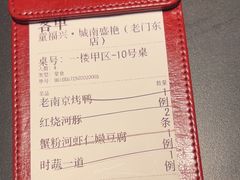 客单
童福兴·城南盛艳（老门东
店）
桌号：一楼甲区-10号桌
人数：4
数量
老南京烤鸭 1
例
红烧河豚 2
条
蟹粉河虾仁嫩豆腐 1
例
时蔬一道 1
例